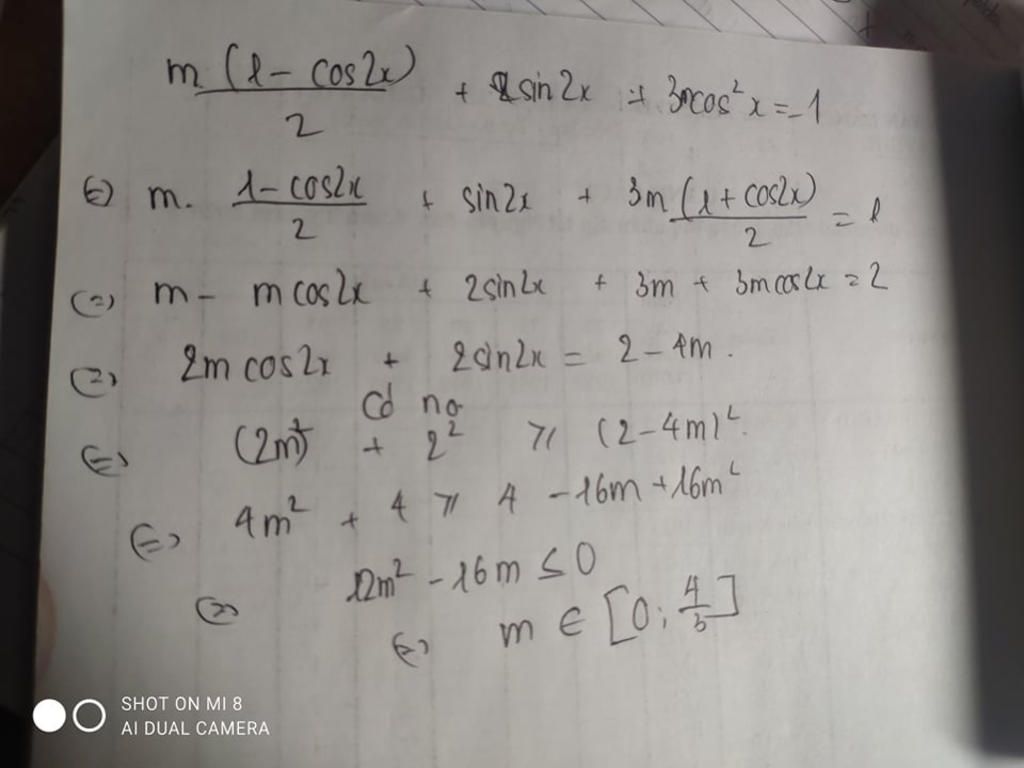 m (1 - cos2x) / 2 + sin2x + 3mcos² x = 1
(=) m. (1 - cos2x) / 2 + sin2x + 3m (1 + cos2x) / 2 = 1
(=) m - mcos2x + 2sin2x + 3m + 3mcos2x = 2
(=) 2m cos2x + 2sin2x = 2 - 4m.
Có no
(=) (2m)² + 2² ≥ (2 - 4m)².
(=) 4m² + 4 ≥ 4 - 16m + 16m²
(=) 12m² - 16m ≤ 0
(=) m ∈ [0; 4/3]
SHOT ON MI 8
AI DUAL CAMERA